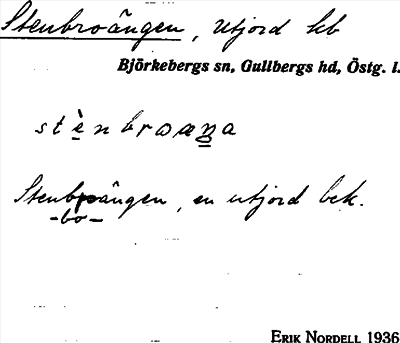 Stenbroängen, utjord kb
Björkebergs sn, Gullbergs hd, Östg. l.
stènbrωæŋa
Stenbroängen, en utjord bek.
-bo-
ERIK NORDELL 1936